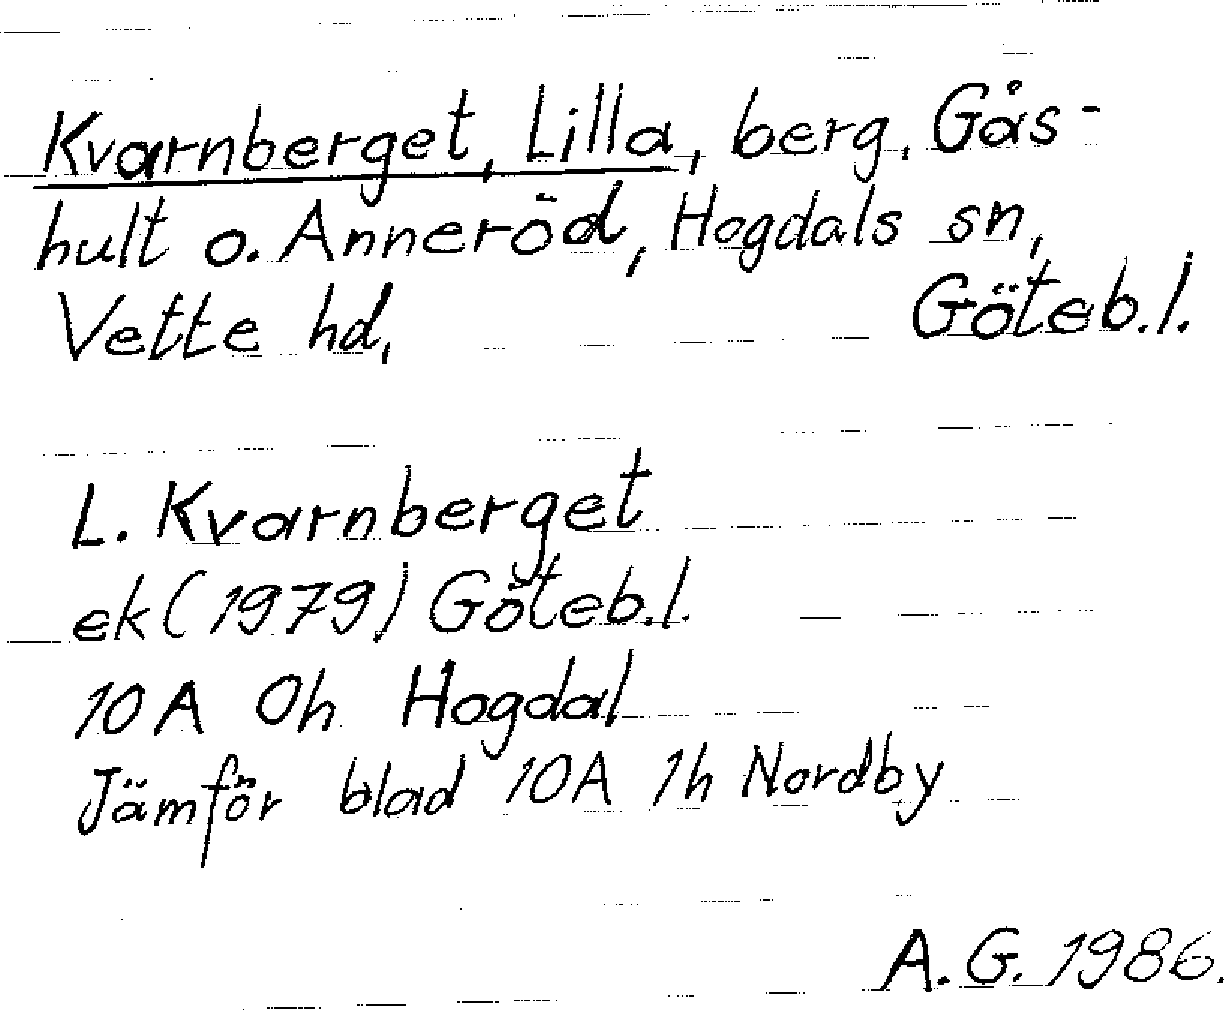 Kvarnberget, Lilla, berg, Gås-
hult o. Anneröd, Hogdals sn,
Vette hd, Göteb.l.
L. Kvarnberget
ek (1979) Göteb.l.
10A 0h Hogdal
Jämför blad 10A 1h Nordby
A.G. 1986.